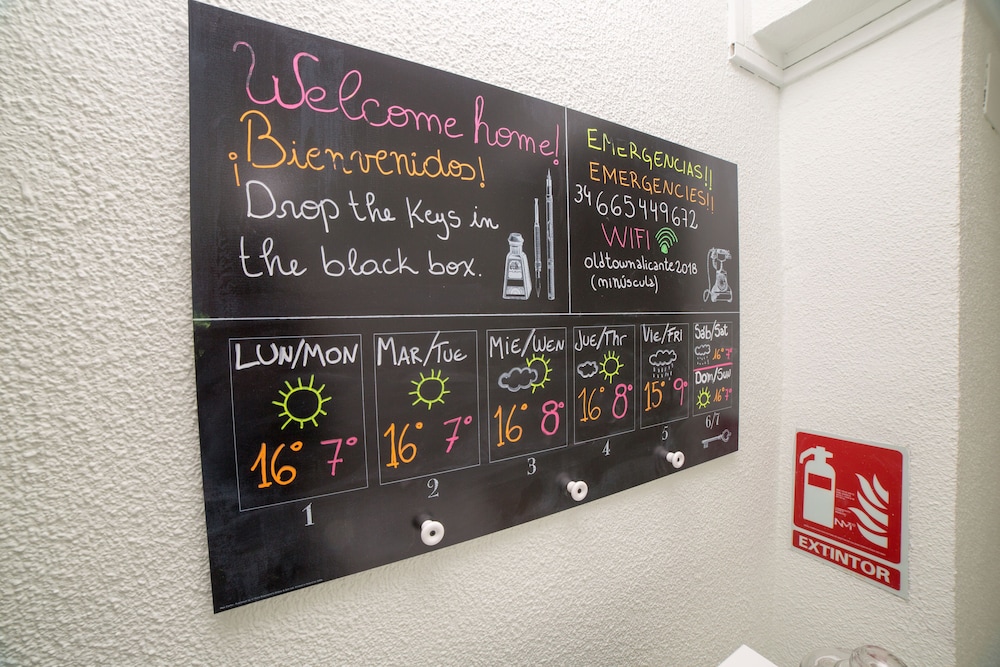 Welcome home!
¡Bienvenidos!
Drop the Keys in
the black box.
EMERGENCIAS!!
EMERGENCIES!!
34 665449672
WIFI
oldtownalicante2018
(minúscula)
LUN/MON
16° 7°
1
MAR/TUE
16° 7°
2
MIE/WEN
16° 8°
3
JUE/Thr
16° 8°
4
Vie/FRI
15° 9°
5
Sab/Sat
16° 7°
Dom/Sun
16° 7°
6/7
NM
EXTINTOR